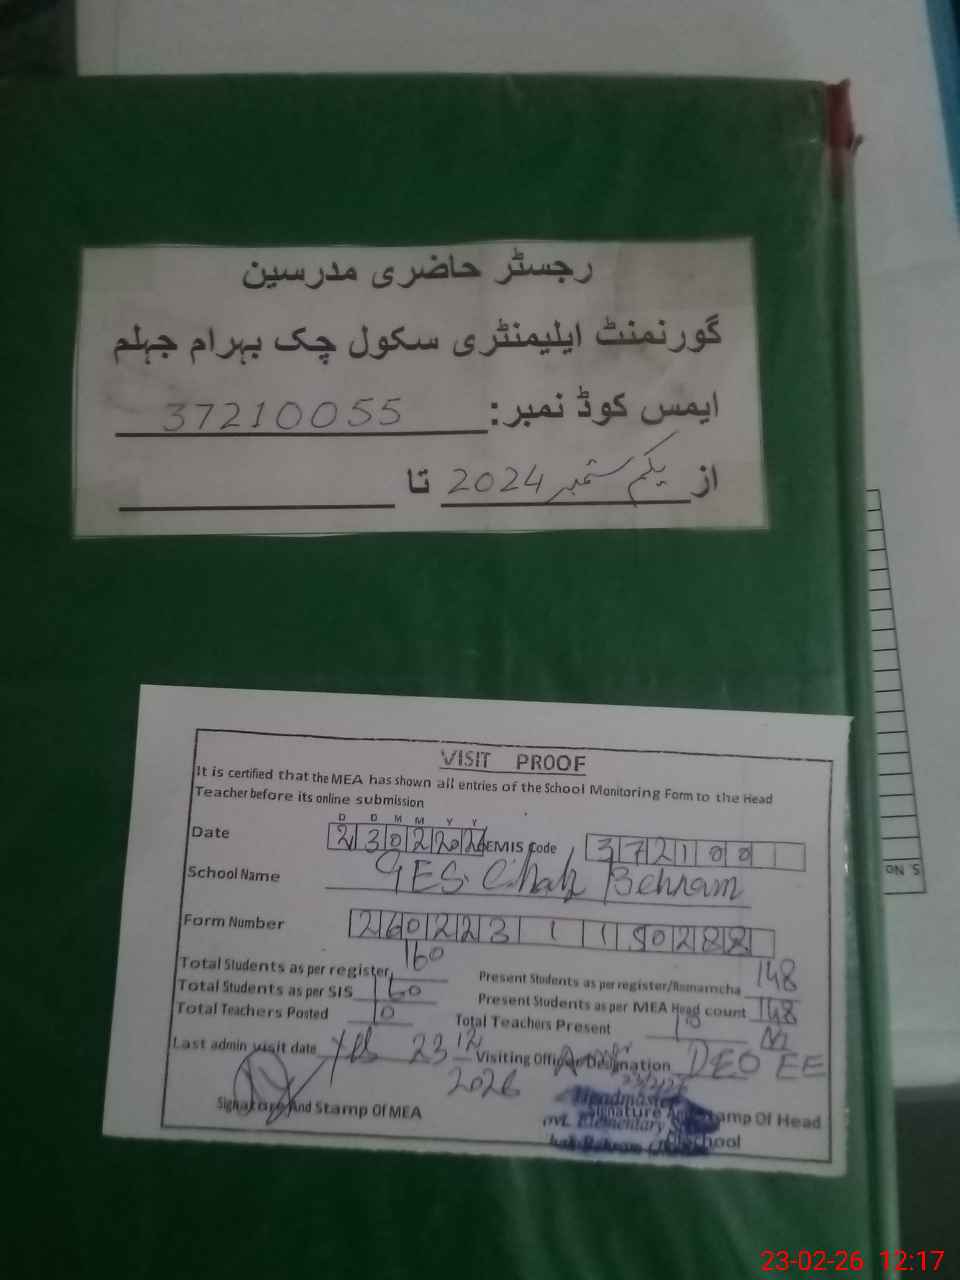 رجسٹر حاضری مدرسین
گورنمنٹ ایلیمنٹری سکول چک بہرام جہلم
ایمس کوڈ نمبر: 37210055
از یکم ستمبر 2024 تا
VISIT PROOF
It is certified that the MEA has shown all entries of the School Monitoring Form to the Head
Teacher before its online submission
D D M M Y Y
Date 23022026 EMIS Code 372100
School Name GES. Chak Behram
Form Number 260223 1 1 50288
Total Students as per register 160 Present Students as per register/Roznamcha 148
Total Students as per SIS 160 Present Students as per MEA Head count 148
Total Teachers Posted 10 Total Teachers Present
Last admin visit date Visiting Officer Designation DEO EE
2026
Signature And Stamp Of MEA
Headmaster
Signature And Stamp Of Head
Govt. Elementary School
Chak Behram School
S. No
23-02-26 12:17